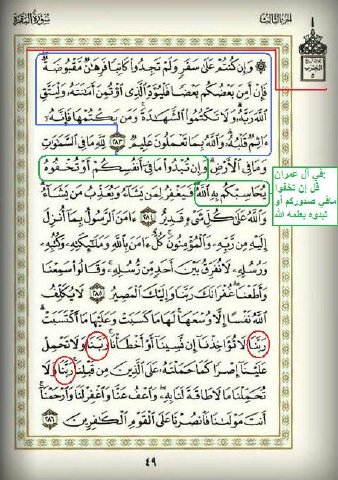 الجزء الثالث
سورة البقرة
۞ وَإِن كُنتُمْ عَلَىٰ سَفَرٍ وَلَمْ تَجِدُوا۟ كَاتِبًا فَرِهَٰنٌ مَّقْبُوضَةٌ
فَإِنْ أَمِنَ بَعْضُكُم بَعْضًا فَلْيُؤَدِّ ٱلَّذِى ٱؤْتُمِنَ أَمَٰنَتَهُۥ وَلْيَتَّقِ
ٱللَّهَ رَبَّهُۥ وَلَا تَكْتُمُوا۟ ٱلشَّهَٰدَةَ وَمَن يَكْتُمْهَا فَإِنَّهُۥٓ
ءَاثِمٌ قَلْبُهُۥ وَٱللَّهُ بِمَا تَعْمَلُونَ عَلِيمٌ ٢٨٣ لِّلَّهِ مَا فِى ٱلسَّمَٰوَٰتِ
وَمَا فِى ٱلْأَرْضِ وَإِن تُبْدُوا۟ مَا فِىٓ أَنفُسِكُمْ أَوْ تُخْفُوهُ
يُحَاسِبْكُم بِهِ ٱللَّهُ فَيَغْفِرُ لِمَن يَشَآءُ وَيُعَذِّبُ مَن يَشَآءُ
وَٱللَّهُ عَلَىٰ كُلِّ شَىْءٍ قَدِيرٌ ٢٨٤ ءَامَنَ ٱلرَّسُولُ بِمَآ أُنزِلَ
إِلَيْهِ مِن رَّبِّهِۦ وَٱلْمُؤْمِنُونَ كُلٌّ ءَامَنَ بِٱللَّهِ وَمَلَٰٓئِكَتِهِۦ وَكُتُبِهِۦ
وَرُسُلِهِۦ لَا نُفَرِّقُ بَيْنَ أَحَدٍ مِّن رُّسُلِهِۦ وَقَالُوا۟ سَمِعْنَا
وَأَطَعْنَا غُفْرَانَكَ رَبَّنَا وَإِلَيْكَ ٱلْمَصِيرُ ٢٨٥ لَا يُكَلِّفُ
ٱللَّهُ نَفْسًا إِلَّا وُسْعَهَا لَهَا مَا كَسَبَتْ وَعَلَيْهَا مَا ٱكْتَسَبَتْ
رَبَّنَا لَا تُؤَاخِذْنَآ إِن نَّسِينَآ أَوْ أَخْطَأْنَا رَبَّنَا وَلَا تَحْمِلْ
عَلَيْنَآ إِصْرًا كَمَا حَمَلْتَهُۥ عَلَى ٱلَّذِينَ مِن قَبْلِنَا رَبَّنَا وَلَا
تُحَمِّلْنَا مَا لَا طَاقَةَ لَنَا بِهِۦ وَٱعْفُ عَنَّا وَٱغْفِرْ لَنَا وَٱرْحَمْنَآ
أَنتَ مَوْلَىٰنَا فَٱنصُرْنَا عَلَى ٱلْقَوْمِ ٱلْكَٰفِرِينَ ٢٨٦
٤٩
الحزب
٥
في آل عمران:
قل إن تخفوا
مافي صدوركم أو
تبدوه يعلمه الله